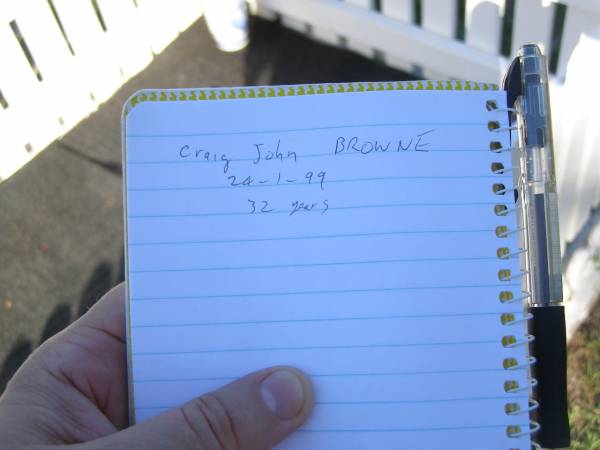 Craig John BROWNE
24-1-99
32 years